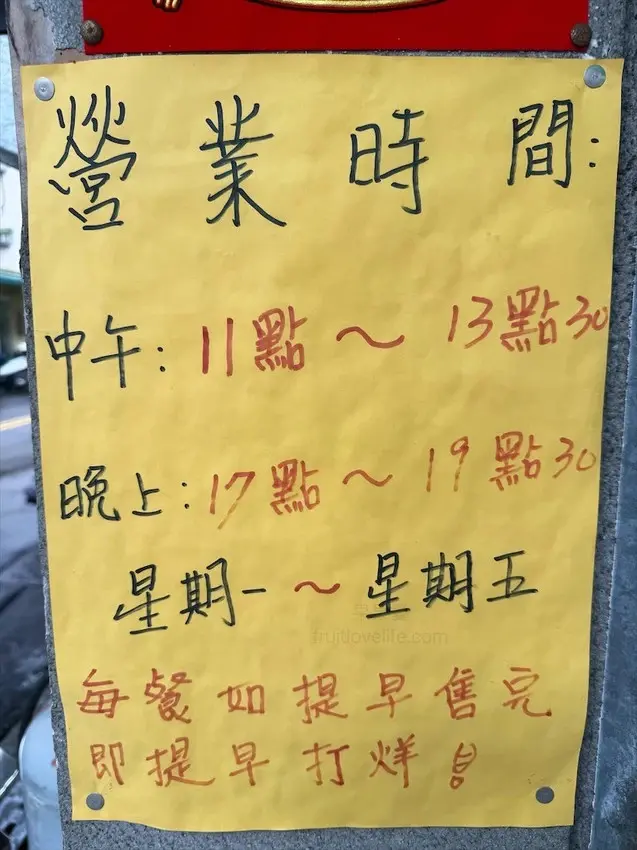 營業時間:
中午:11點～13點30
晚上:17點～19點30
星期一～星期五
fruitlovelife.com
每餐如提早售完
即提早打烊!